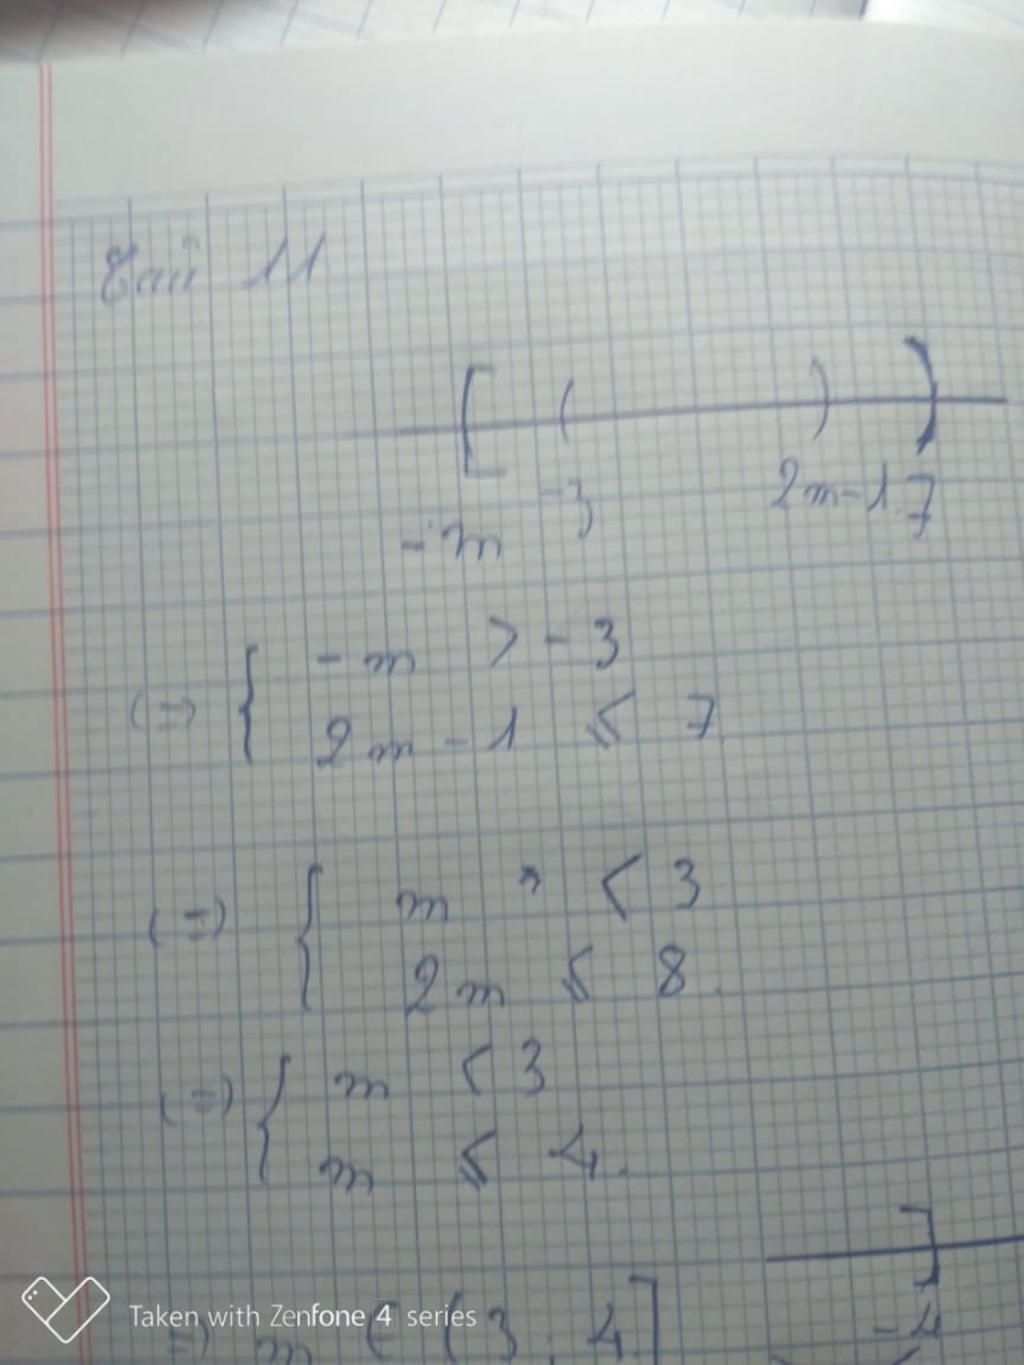 Bài 11
[ ( ) )
-m -3 2m-1 7
(=) { -m > -3
2m - 1 ≤ 7
(=) { m < 3
2m ≤ 8.
(=) { m < 3
m ≤ 4.
]
-4
=) m ∈ (3 ; 4]
Taken with Zenfone 4 series